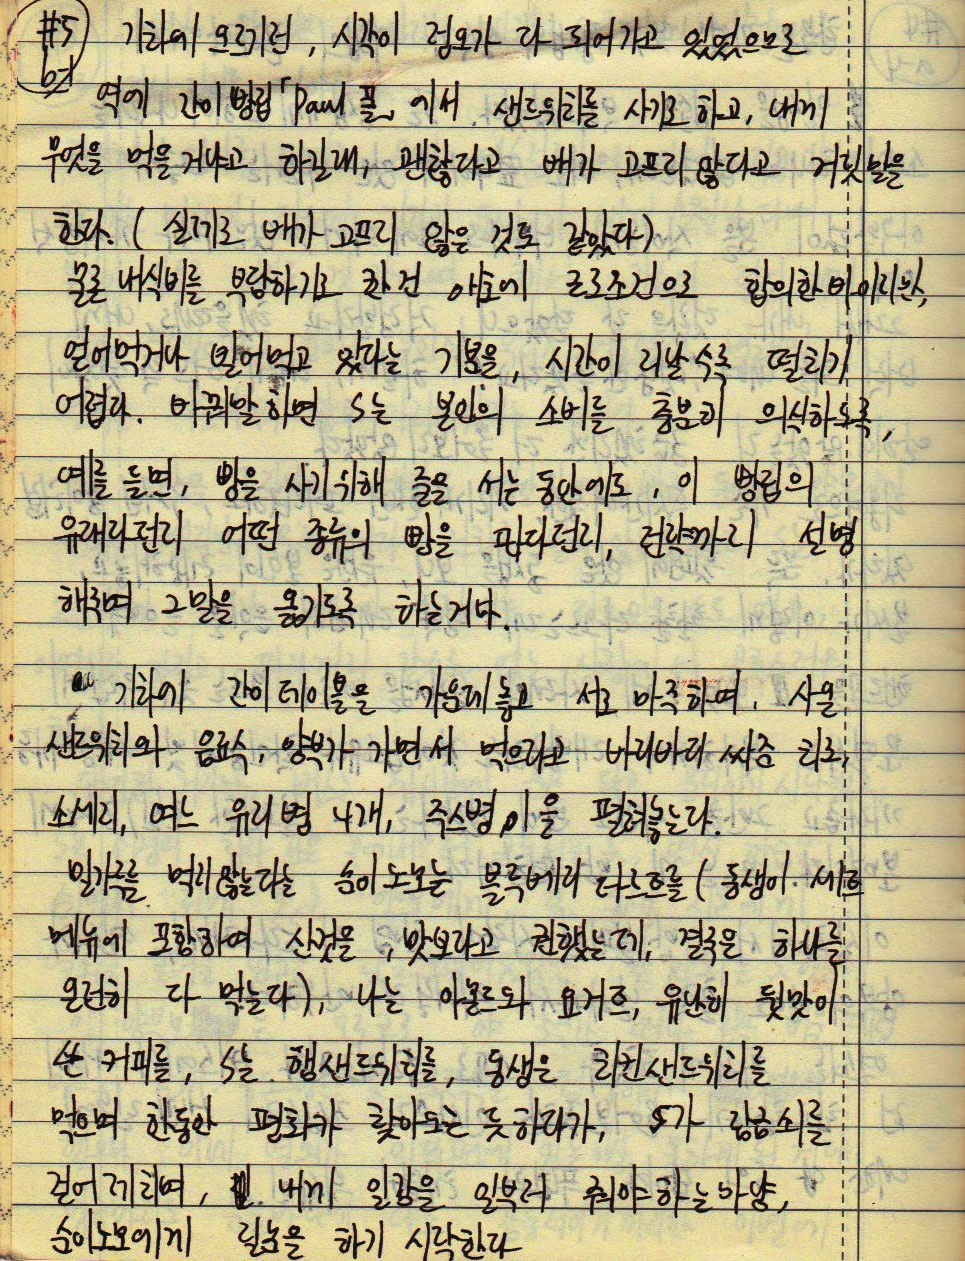 #5 by
기차에 오르기전, 시각이 정오가 다 되어가고 있었으므로
역에 간이빵집「Paul 폴」에서 샌드위치를 사기로 하고, 내게
무엇을 먹을거냐고 하길래, 괜찮다고 배가 고프지 않다고 거짓말을
한다. ( 실제로 배가 고프지 않은 것도 같았다)
물론 내식비를 부담하기로 한건 애초에 근로조건으로 합의한바이지만,
얻어먹거나 빌어먹고 있다는 기분을, 시간이 지날수록 떨치기
어렵다. 바꿔말하면 S는 본인의 소비를 충분히 의식하도록,
예를들면, 빵을 사기위해 줄을 서는 동안에도, 이 빵집의
유래라던지 어떤 종류의 빵을 판다던지, 전략까지 설명
해주며 그말을 옮기도록 하는거다.
기차에 간이테이블을 가운데놓고 서로 마주하며, 사온
샌드위치와 음료수, 양부가 가면서 먹으라고 바리바리 싸준 치즈,
소세지, 여느 유리병 4개, 주스병,이을 펼쳐놓는다.
밀가루를 먹지않는다는 슌이노보는 블루베리 타르트를 ( 동생이 세트
메뉴에 포함하여 산것을, 맛보라고 권했는데, 결국은 하나를
온전히 다 먹는다), 나는 아몬드와 요거트, 유난히 뒷맛이
쓴 커피를, S는 햄샌드위치를, 동생은 치킨샌드위치를
먹으며 한동안 평화가 찾아오는 듯하다가, S가 잠금쇠를
걷어제치며, 내게 일장을 일부러 줘야하는마냥,
슌이노보에게 질문을 하기 시작한다